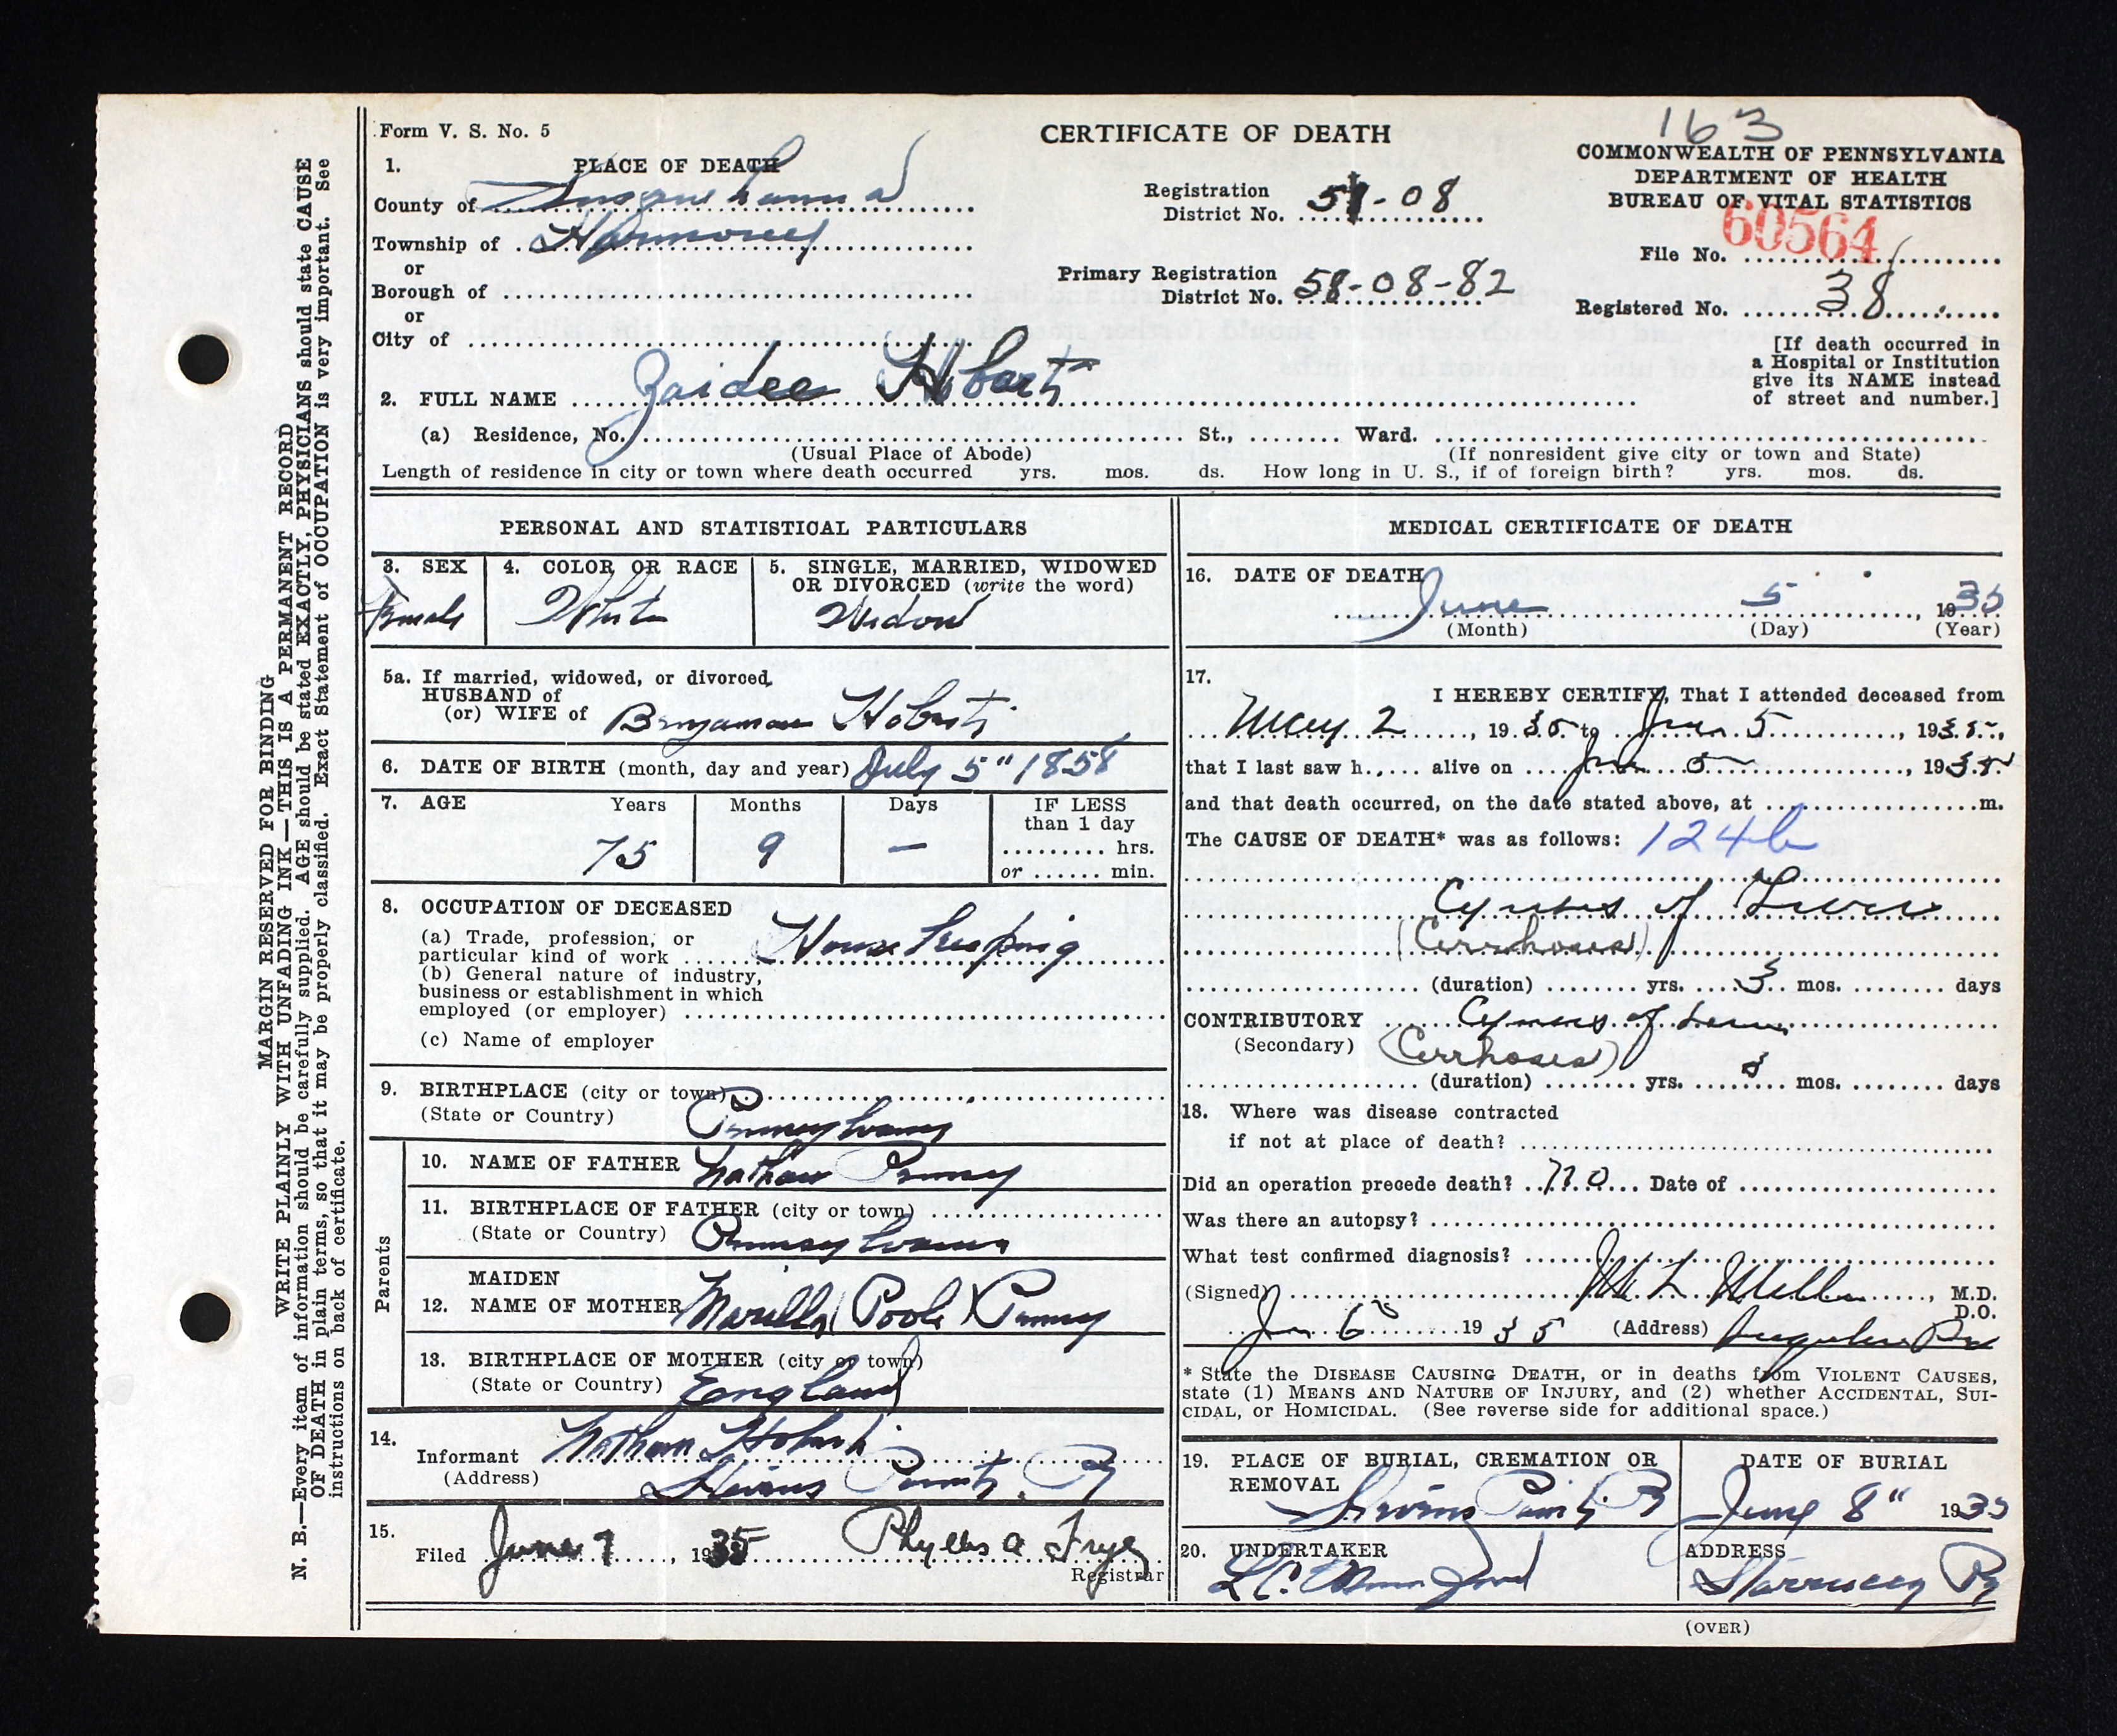 163
Form V. S. No. 5
CERTIFICATE OF DEATH
COMMONWEALTH OF PENNSYLVANIA
DEPARTMENT OF HEALTH
BUREAU OF VITAL STATISTICS
1. PLACE OF DEATH
County of Susquehanna
Township of Harmony
or
Borough of
or
City of
Registration District No. 58-08
Primary Registration District No. 58-08-82
File No. 60564
Registered No. 38
[If death occurred in
a Hospital or Institution
give its NAME instead
of street and number.]
2. FULL NAME Zaidee Hobart
(a) Residence, No. St., Ward.
(Usual Place of Abode) (If nonresident give city or town and State)
Length of residence in city or town where death occurred yrs. mos. ds. How long in U. S., if of foreign birth? yrs. mos. ds.
PERSONAL AND STATISTICAL PARTICULARS
3. SEX
Female
4. COLOR OR RACE
White
5. SINGLE, MARRIED, WIDOWED
OR DIVORCED (write the word)
Widow
5a. If married, widowed, or divorced
HUSBAND of
(or) WIFE of Benjaman Hobart
6. DATE OF BIRTH (month, day and year) July 5" 1858
7. AGE Years Months Days IF LESS
than 1 day
75 9 — hrs.
or min.
8. OCCUPATION OF DECEASED
(a) Trade, profession, or
particular kind of work House keeping
(b) General nature of industry,
business or establishment in which
employed (or employer)
(c) Name of employer
9. BIRTHPLACE (city or town)
(State or Country) Pennsylvania
Parents
10. NAME OF FATHER Nathan
11. BIRTHPLACE OF FATHER (city or town)
(State or Country) Pennsylvania
MAIDEN
12. NAME OF MOTHER (Poole)
13. BIRTHPLACE OF MOTHER (city or town)
(State or Country) England
14.
Informant Nathan Hobart
(Address) Stevens Point, Pa
15.
Filed June 7, 1935 Phyllis A Frye
Registrar
MEDICAL CERTIFICATE OF DEATH
16. DATE OF DEATH
June 5, 1935
(Month) (Day) (Year)
17.
I HEREBY CERTIFY, That I attended deceased from
May 2, 1935 to Jun 5, 1935,
that I last saw h alive on Jun 5, 1935
and that death occurred, on the date stated above, at m.
The CAUSE OF DEATH* was as follows: 124b
of Liver
(Cerrhoses)
(duration) yrs. 3 mos. days
CONTRIBUTORY of Liver
(Secondary) (Cerrhoses)
(duration) yrs. 3 mos. days
18. Where was disease contracted
if not at place of death?
Did an operation precede death? no Date of
Was there an autopsy?
What test confirmed diagnosis?
(Signed) Miller, M.D.
D.O.
Jun 6 1935 (Address) Pa
* State the DISEASE CAUSING DEATH, or in deaths from VIOLENT CAUSES,
state (1) MEANS AND NATURE OF INJURY, and (2) whether ACCIDENTAL, SUI-
CIDAL, or HOMICIDAL. (See reverse side for additional space.)
19. PLACE OF BURIAL, CREMATION OR
REMOVAL
Stevens Point, Pa
DATE OF BURIAL
June 8" 1935
20. UNDERTAKER
ADDRESS
Starrucca Pa
(OVER)
MARGIN RESERVED FOR BINDING
WRITE PLAINLY WITH UNFADING INK—THIS IS A PERMANENT RECORD
N. B.—Every item of information should be carefully supplied. AGE should be stated EXACTLY, PHYSICIANS should state CAUSE
OF DEATH in plain terms, so that it may be properly classified. Exact Statement of OCCUPATION is very important. See
instructions on back of certificate.